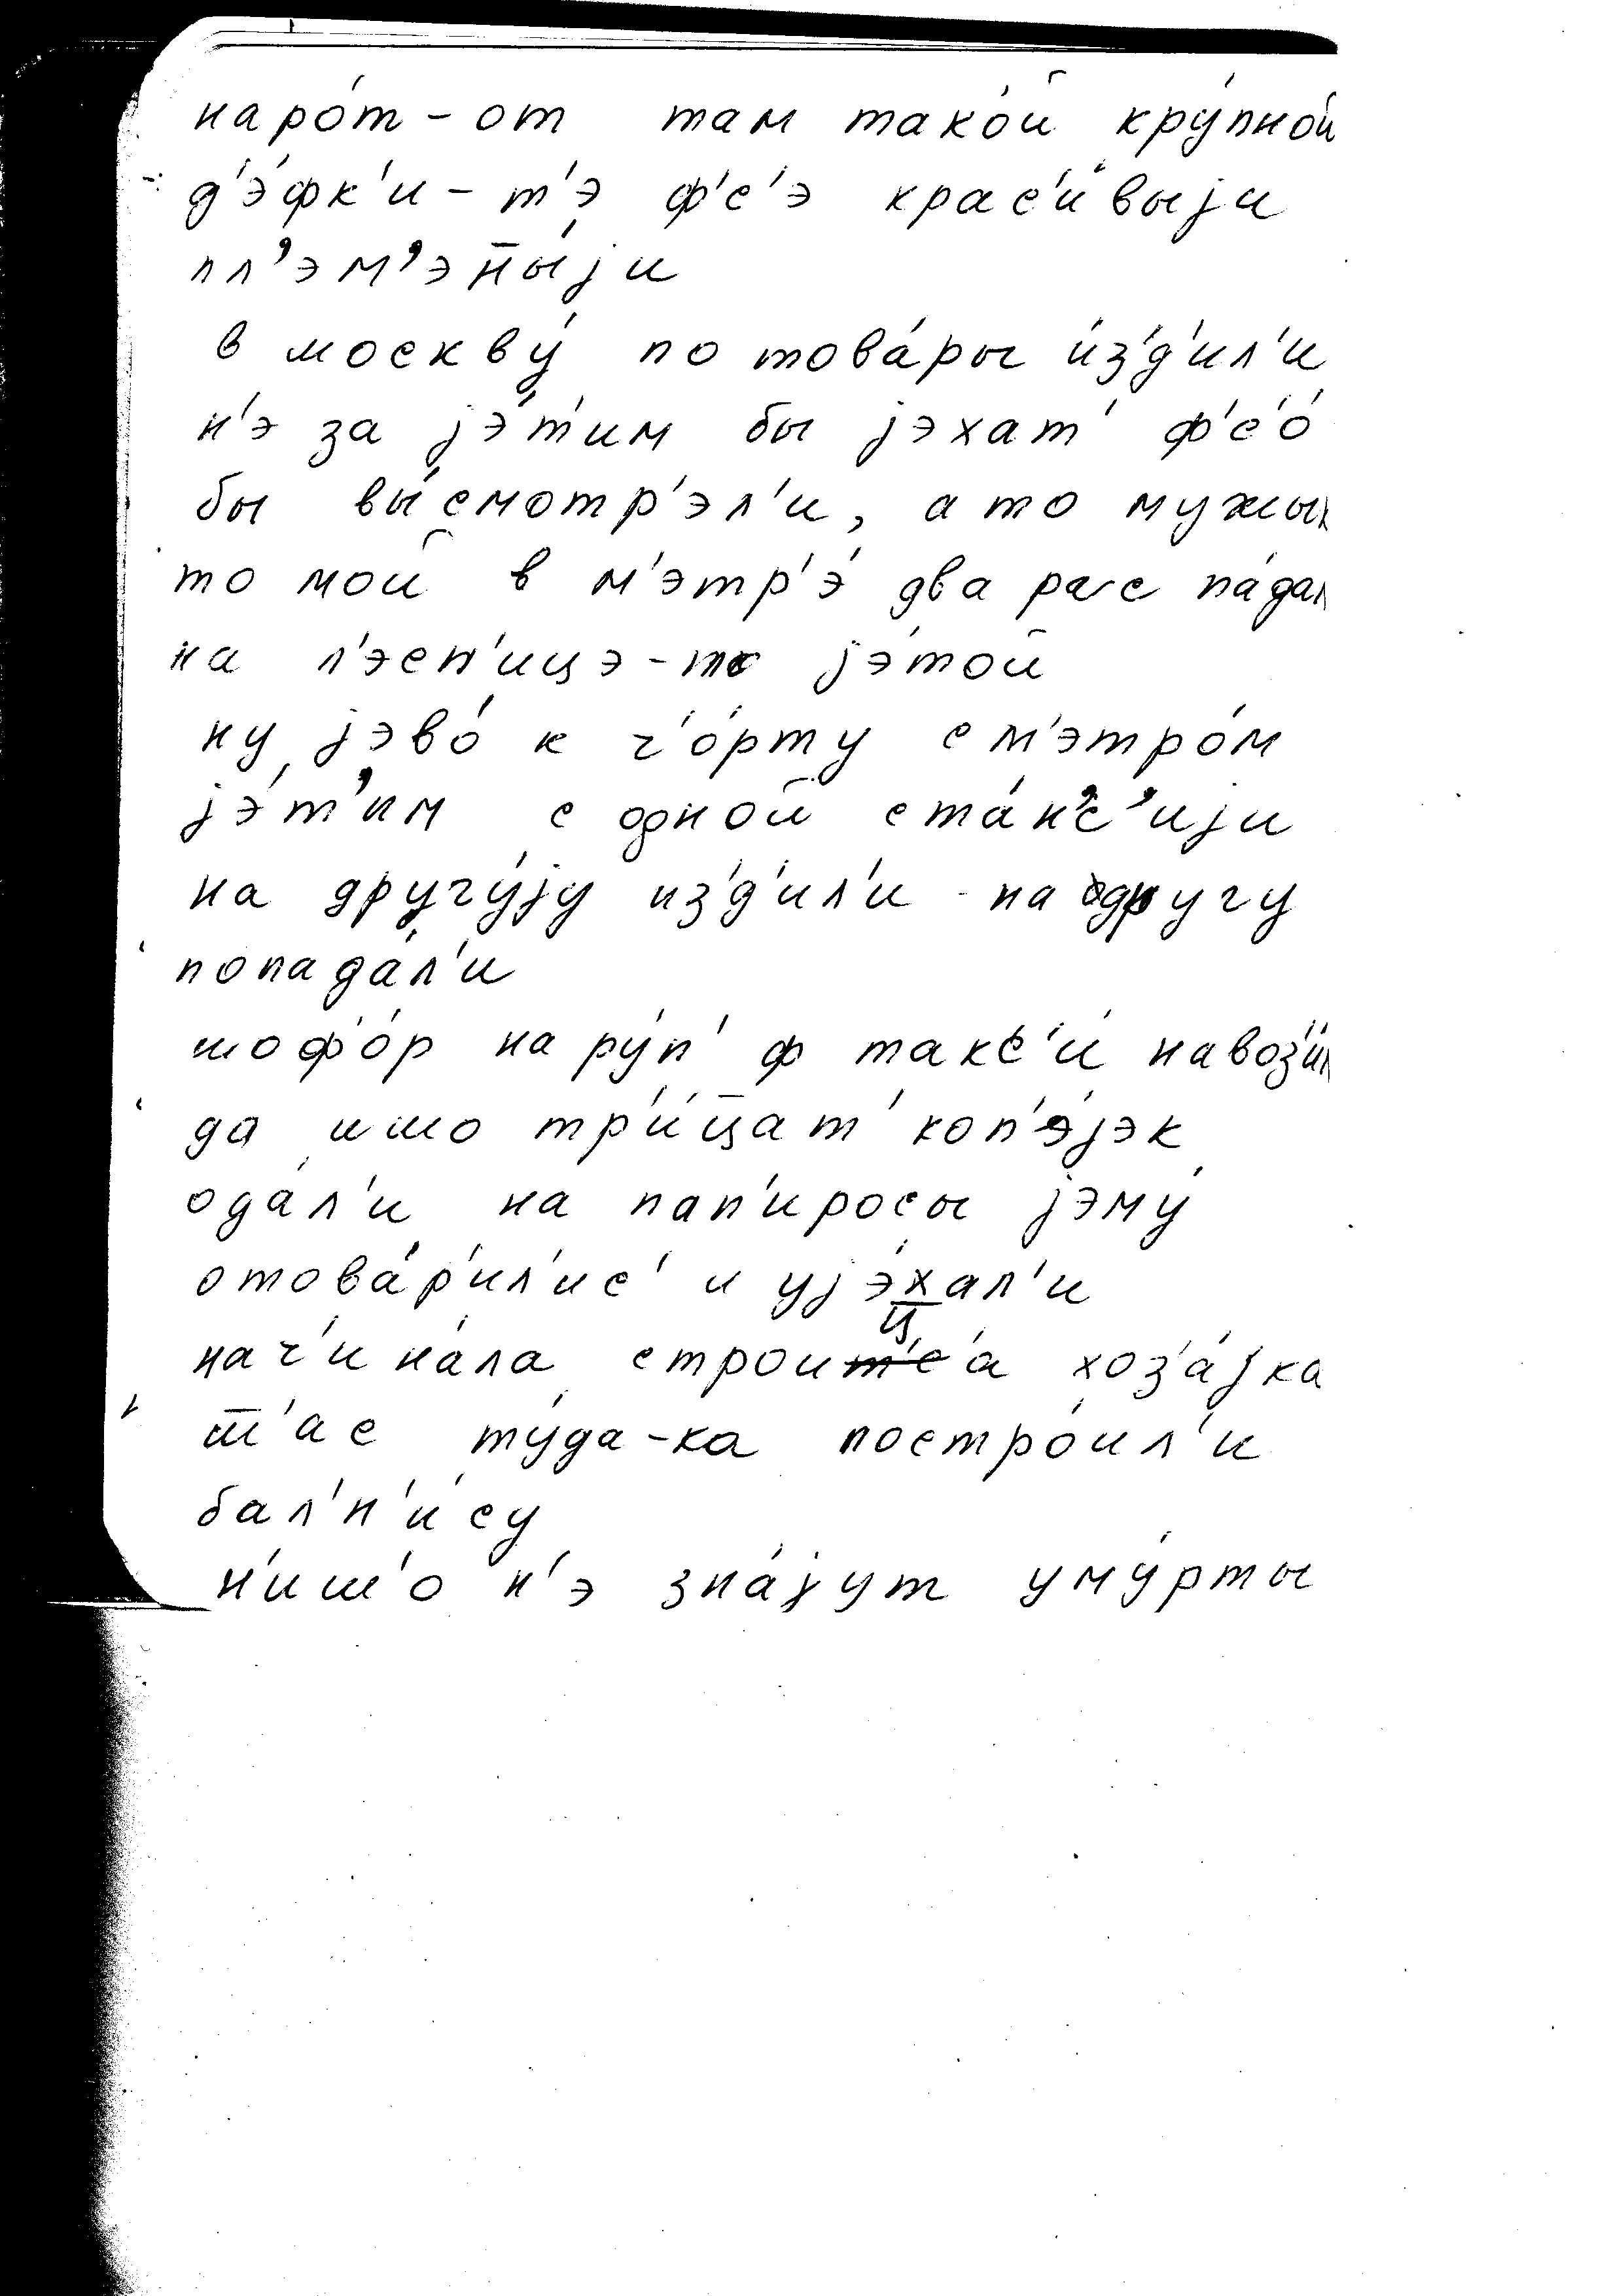 наро́т - от там тако́й кру́пной
д'э́фк'и - т'э ф'с'э крас'и́выjи
пл'эм'э́н̄ыjи
в москву́ по това́ры и́з'д'ил'и
н'э за jэ́т'им бы jэхат' ф'с'о́
бы вы́смотр'эл'и, а то мужы
то мой в м'этр'э́ два рас па́дал
на л'эс'н'ицэ - то jэ́той
ну jэво́ к ч'о́рту с м'этро́м
jэ́т'им с одной ста́н'с'иjи
на другу́jу из'д'ил'и на другу
попада́л'и
шоф'о́р на ру́п' ф такс'и́ навоз'и́л
да ишо три́ц̄ат' коп'э́jэк
ода́л'и на пап'иросы jэму́
отова́р'ил'ис' и уjэ́хал'и
нач'ина́ла строица хоз'а́jка
ш̄'ас ту́да - ка постро́ил'и
бал'н'и́су
н'иш'о н'э зна́jут уму́рты